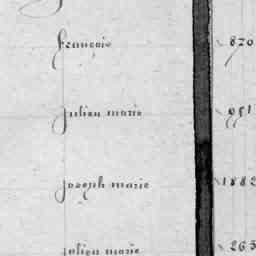 françois 870
julien marie 951
joseph marie 1882
julien marie 263